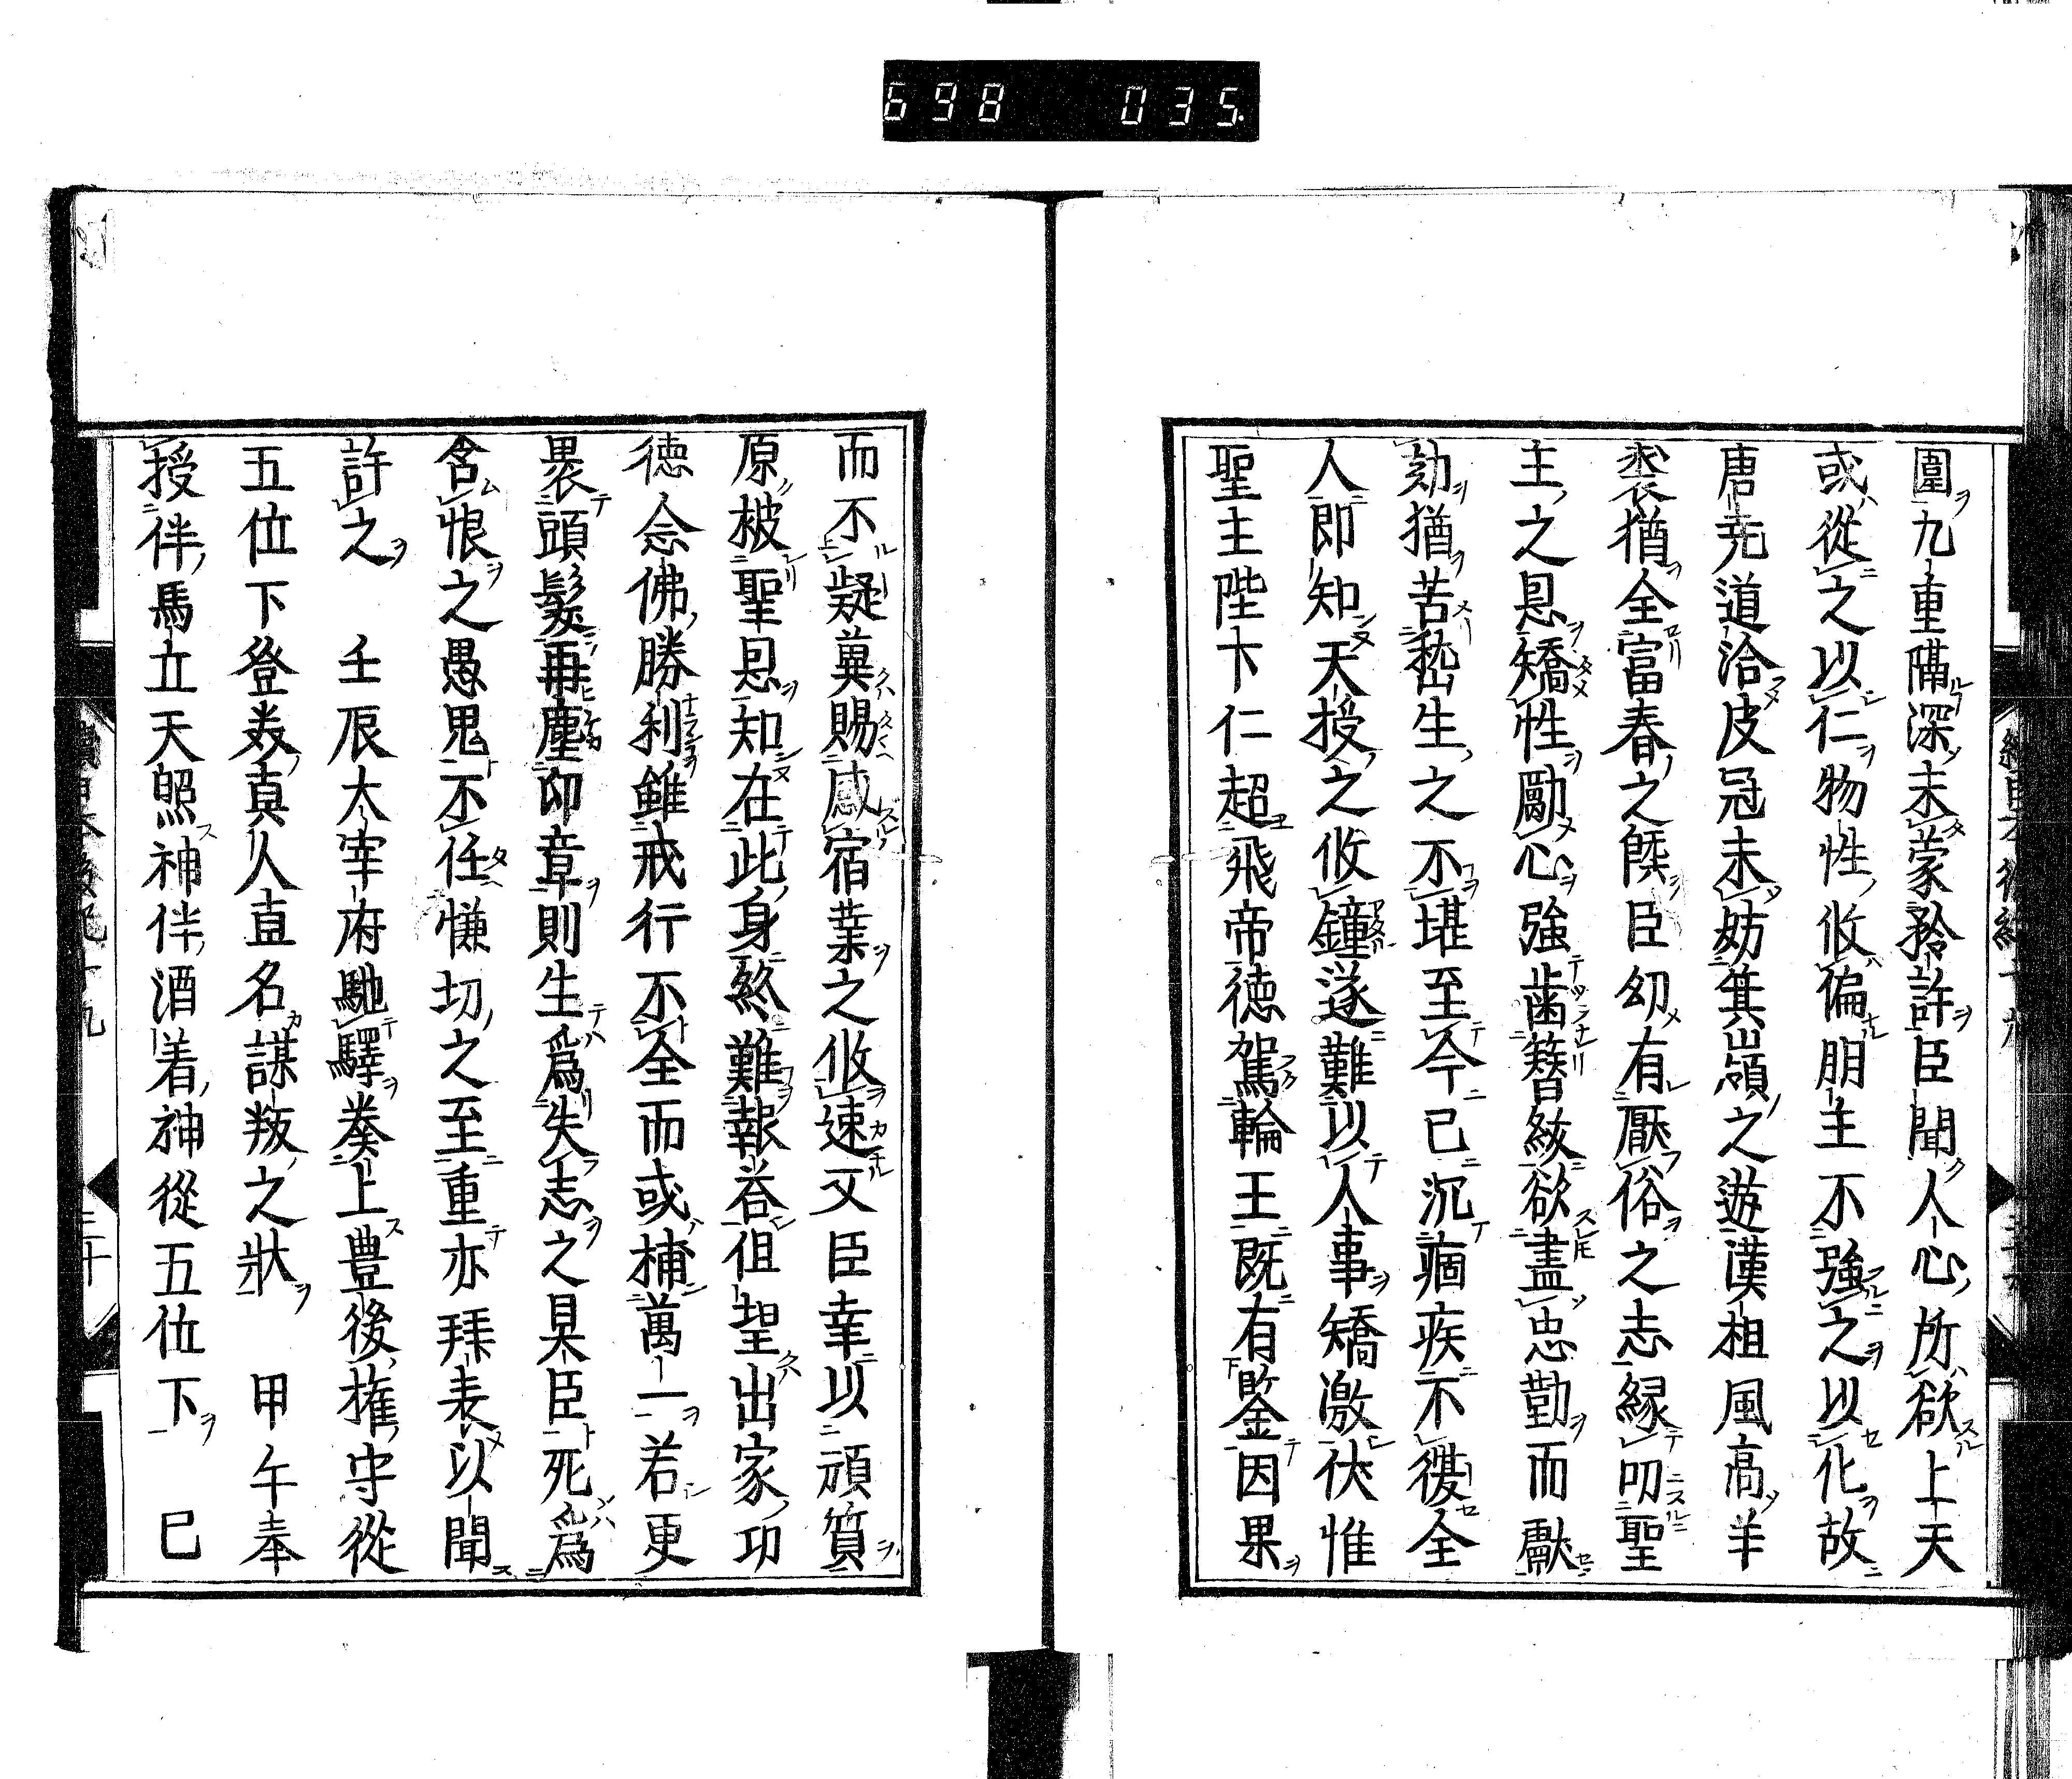 698 035
圍九重隔深未蒙矜許臣聞人心所欲上天
或從之以仁物性攸偏朋主不強之以化故
唐尭道洽皮冠未妨箕嶺之遊漢祖風高羊
裘猶全富春之餗臣幼有厭俗之志縁叨聖
主之恩矯性勵心強歯簪紱欲盡忠勤而獻
劾猶苦嵆生之不堪至今已沉痼疾不復全
人即知天授之攸鐘遂難以人事矯激伏惟
聖主陛下仁超飛帝徳駕輪王既有鍳因果
而不疑冀賜感宿業之攸速又臣幸以頑質
原被聖恩知在此身終難報荅但望出家功
徳念佛勝利雖戒行不全而或補萬一若更
褁頭髮再塵印章則生爲失志之具臣死爲
含恨之愚鬼不任慊切之至重亦拜表以聞
許之　壬辰大宰府馳驛奏上豊後權守從
五位下登美真人直名謀叛之狀　甲午奉
授伴馬立天照神伴酒着神從五位下　巳
續日本後紀十九　三十